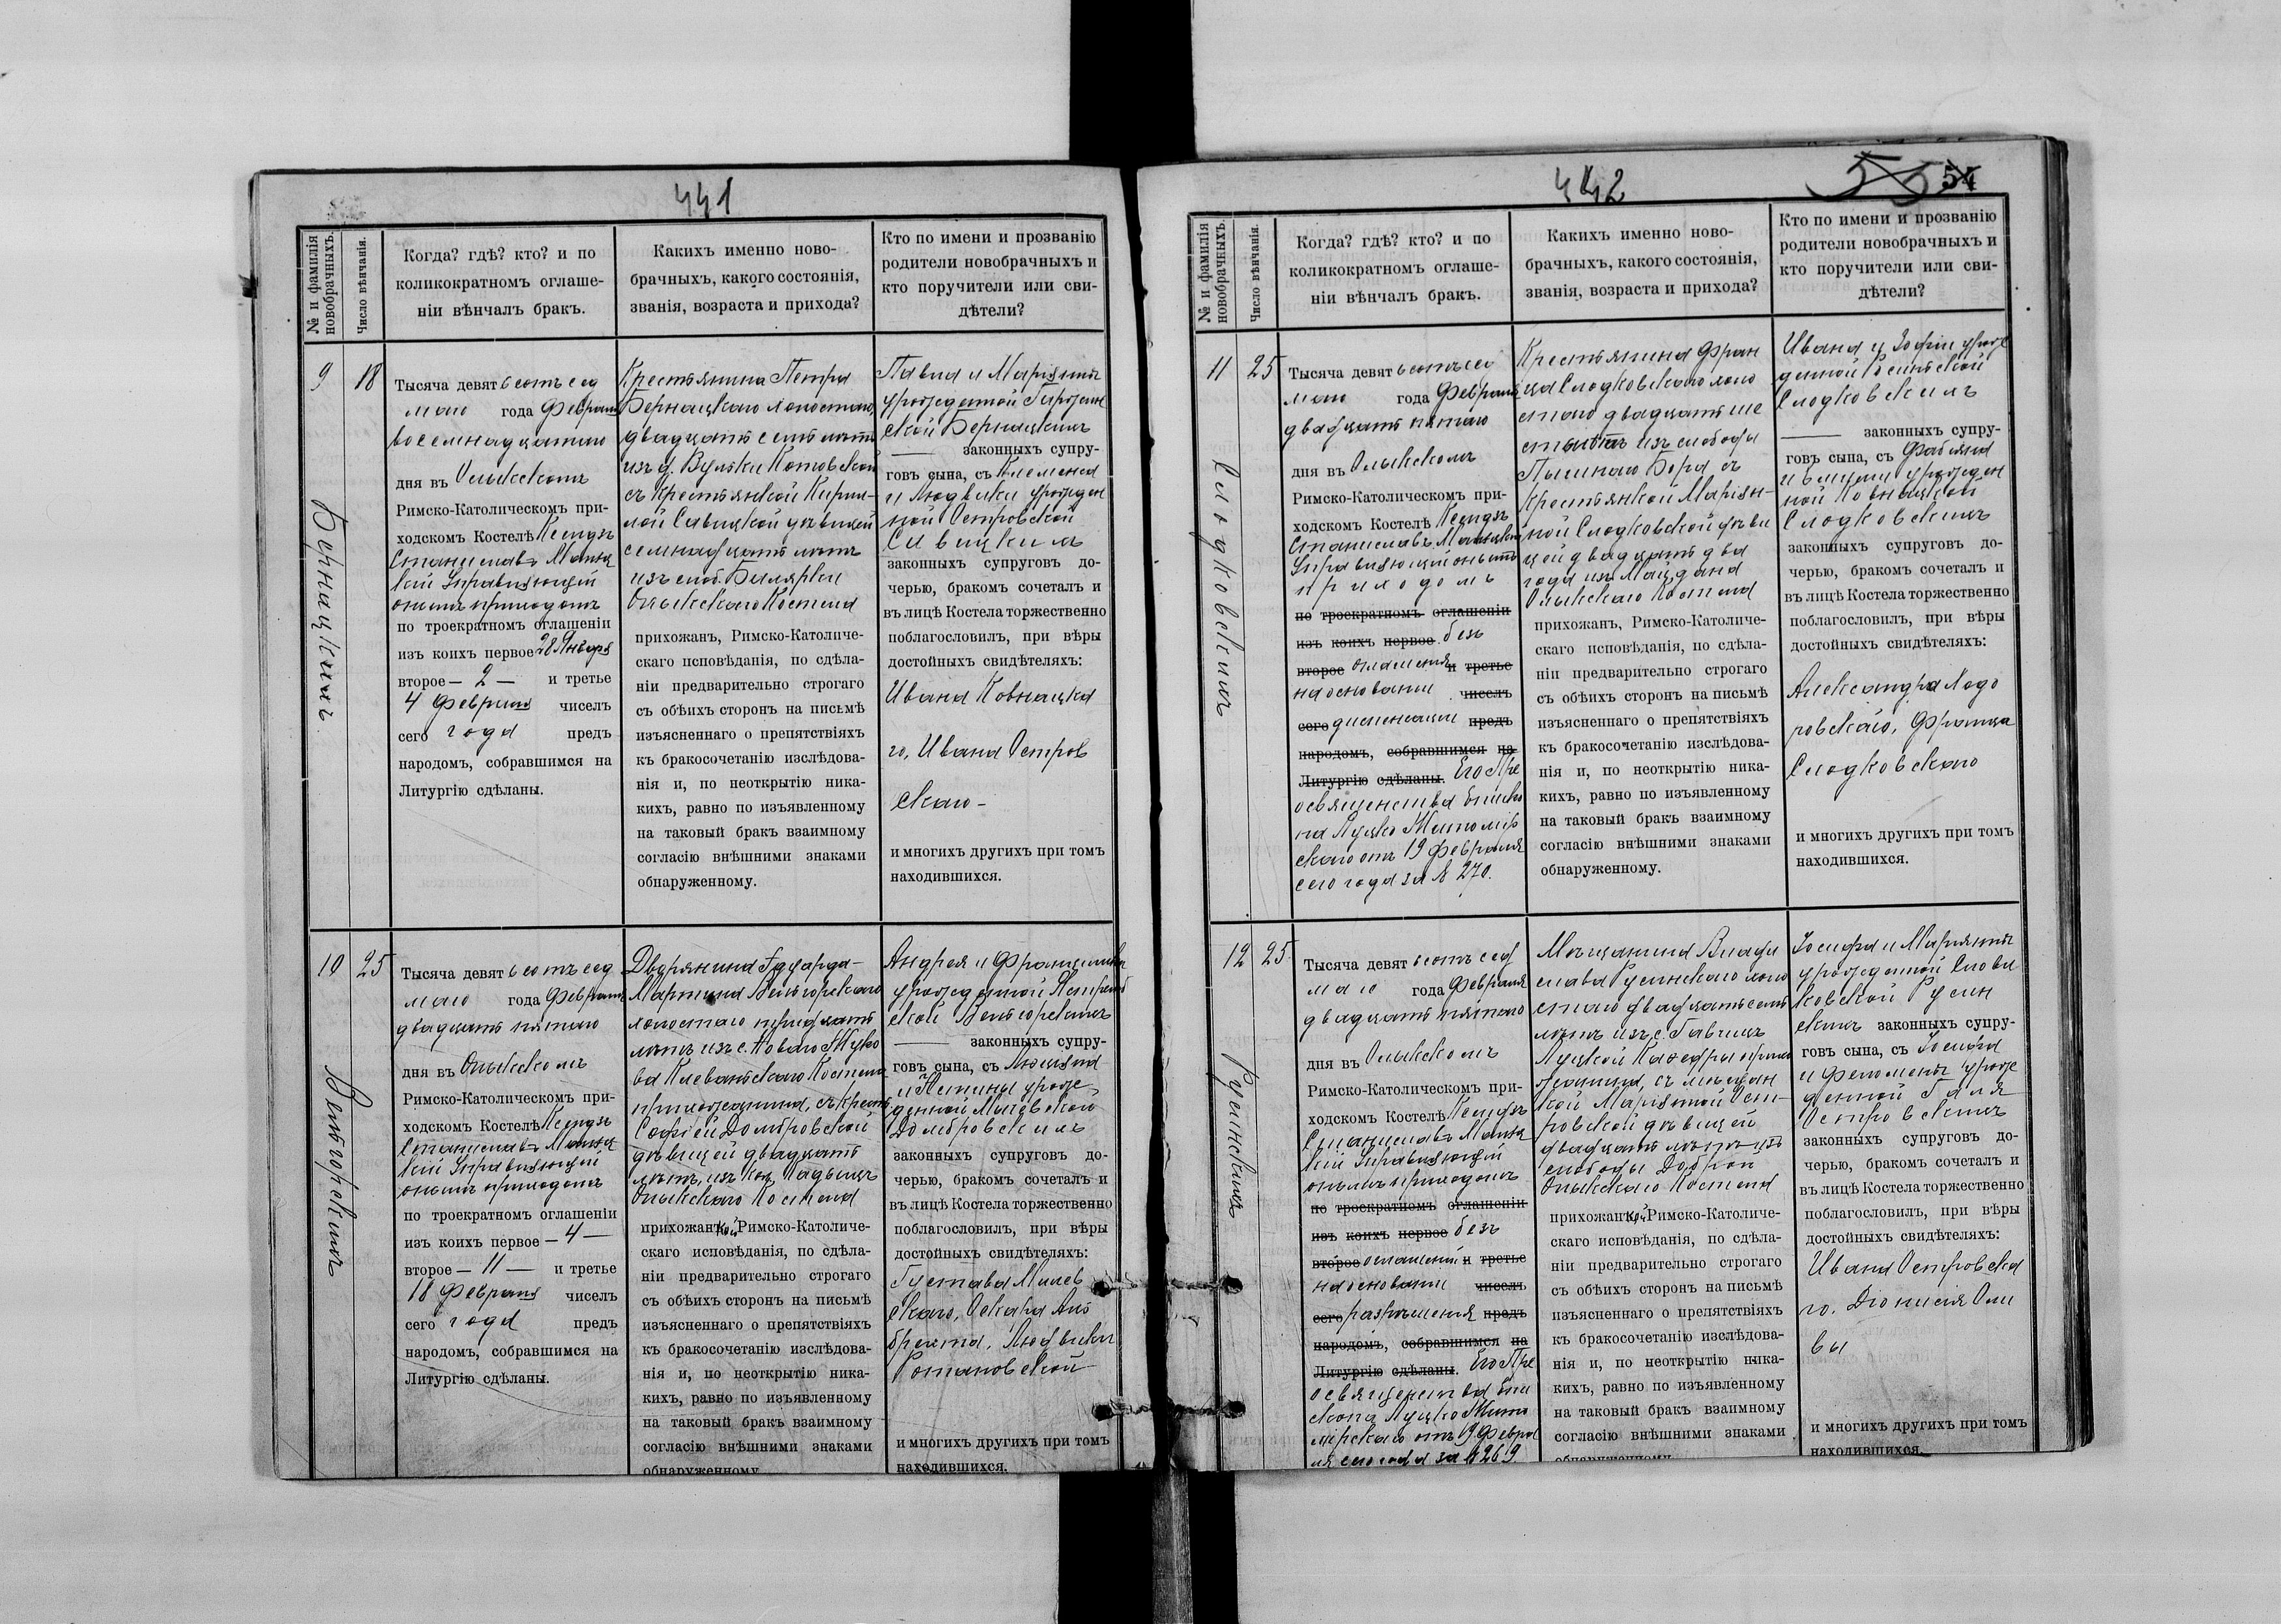 441
№ и фамилія новобрачныхъ.
Число вѣнчанія.
Когда? гдѣ? кто? и по
коликократномъ оглаше-
ніи вѣнчалъ бракъ.
Какихъ именно ново-
брачныхъ, какого состоянія,
званія, возраста и прихода?
Кто по имени и прозванію
родители новобрачныхъ и
кто поручители или сви-
дѣтели?
9
Бернацкихъ
18
Тысяча девятьсотъ сед
маго года Февраля
восемнадцатаго
дня въ Олыкскомъ
Римско-Католическомъ при-
ходскомъ Костелѣ Ксендзъ
Станиславъ
Управляющій
онымъ приходомъ
по троекратномъ оглашеніи
изъ коихъ первое 28 Января
второе — 2 — и третье
4 Февраля чиселъ
сего года предъ
народомъ, собравшимся на
Литургію сдѣланы.
Крестьянина Петра
Бернацкаго холостаго,
двадцати семи лѣтъ
изъ д. Вульки Котовской
съ крестьянкой Кирил-
лой Савицкой дѣвицей
семнадцати лѣтъ
изъ слоб.
Олыкскаго Костела
прихожанъ, Римско-Католиче-
скаго исповѣданія, по сдѣла-
ніи предварительно строгаго
съ обѣихъ сторонъ на письмѣ
изъясненнаго о препятствіяхъ
къ бракосочетанію изслѣдова-
нія и, по неоткрытію ника-
кихъ, равно по изъявленному
на таковый бракъ взаимному
согласію внѣшними знаками
обнаруженному.
Павла и Маріянны
урожденной
ской Бернацкихъ
законныхъ супру-
говъ сына, съ Клеменса
и Людвики урожден
ной Островской
Савицкихъ
законныхъ супруговъ до-
черью, бракомъ сочеталъ и
въ лицѣ Костела торжественно
поблагословилъ, при вѣры
достойныхъ свидѣтеляхъ:
Ивана Ковнацка
го, Ивана Остров
скаго —
и многихъ другихъ при томъ
находившихся.
10
Вельгорскихъ
25
Тысяча девятьсотъ сед
маго года Февраля
двадцать пятаго
дня въ Олыкскомъ
Римско-Католическомъ при-
ходскомъ Костелѣ Ксендзъ
Станиславъ
Управляющій
онымъ приходомъ
по троекратномъ оглашеніи
изъ коихъ первое — 4 —
второе — 11 — и третье
18 Февраля чиселъ
сего года предъ
народомъ, собравшимся на
Литургію сдѣланы.
Дворянина Эдуарда-
Мартина Вельгорскаго
холостаго тридцати
лѣтъ изъ с. Новаго Жуко
ва Клеванскаго Костела
прихожанина, съ крест.
Софіей Домбровской
дѣвицей двадцати
лѣтъ, изъ кол.
Олыкскаго Костела
прихожанкой Римско-Католиче-
скаго исповѣданія, по сдѣла-
ніи предварительно строгаго
съ обѣихъ сторонъ на письмѣ
изъясненнаго о препятствіяхъ
къ бракосочетанію изслѣдова-
нія и, по неоткрытію ника-
кихъ, равно по изъявленному
на таковый бракъ взаимному
согласію внѣшними знаками
обнаруженному
Андрея и
урожденной
ской Вельгорскихъ
законныхъ супру-
говъ сына, съ
и урож
денной
Домбровскихъ
законныхъ супруговъ до-
черью, бракомъ сочеталъ и
въ лицѣ Костела торжественно
поблагословилъ, при вѣры
достойныхъ свидѣтеляхъ:
Густава Милев
скаго, Оскара Аль
брехта, Людвики
Романовской
и многихъ другихъ при томъ
находившихся.
442
55
54
№ и фамилія новобрачныхъ.
Число вѣнчанія.
Когда? гдѣ? кто? и по
коликократномъ оглаше-
ніи вѣнчалъ бракъ.
Какихъ именно ново-
брачныхъ, какого состоянія,
званія, возраста и прихода?
Кто по имени и прозванію
родители новобрачныхъ и
кто поручители или сви-
дѣтели?
11
Слодковскихъ
25
Тысяча девятьсотъ сед
маго года Февраля
двадцать пятаго
дня въ Олыкскомъ
Римско-Католическомъ при-
ходскомъ Костелѣ Ксендзъ
Станиславъ
Управляющій онымъ
приходомъ
по троекратномъ оглашеніи
изъ коихъ первое без
второе оглашенія и третье
на основаніи чиселъ
сего диспенсаціи предъ
народомъ, собравшимся на
Литургію сдѣланы. Его Пре
освященства Еписко
па Луцко Житомір
скаго отъ 19 Февраля
сего года за № 270.
Крестьянина Фран
ца Слодковскаго холо
стаго двадцати ше
сти лѣтъ изъ слободы
Пышнаго Бора съ
крестьянкой Маріян-
ной Слодковской дѣви
цей двадцати два
года изъ Майдана
Олыкскаго Костела
прихожанъ, Римско-Католиче-
скаго исповѣданія, по сдѣла-
ніи предварительно строгаго
съ обѣихъ сторонъ на письмѣ
изъясненнаго о препятствіяхъ
къ бракосочетанію изслѣдова-
нія и, по неоткрытію ника-
кихъ, равно по изъявленному
на таковый бракъ взаимному
согласію внѣшними знаками
обнаруженному.
Ивана и Зофіи урож
денной
Слодковскихъ
законныхъ супру-
говъ сына, съ Фабіяна
и урожден
ной Ковнацкой
Слодковскихъ
законныхъ супруговъ до-
черью, бракомъ сочеталъ и
въ лицѣ Костела торжественно
поблагословилъ, при вѣры
достойныхъ свидѣтеляхъ:
Александра Ходо
ровскаго, Франца
Слодковскаго
и многихъ другихъ при томъ
находившихся.
12
Русинскихъ
25.
Тысяча девятьсотъ сед
маго года Февраля
двадцать пятаго
дня въ Олыкскомъ
Римско-Католическомъ при-
ходскомъ Костелѣ Ксендзъ
Станиславъ
Управляющій
онымъ приходомъ
по троекратномъ оглашеніи
изъ коихъ первое безъ
второе оглашеній и третье
на основаніи чиселъ
сего разрѣшенія предъ
народомъ, собравшимся на
Литургію сдѣланы. Его Пре
освященства Епи
скопа Луцко Жито
мірскаго отъ 19 Февра
ля сего года за № 269
Мѣщанина Влади
слава Русинскаго холо
стаго двадцати семи
лѣтъ изъ с.
Луцкой Каѳедры прихо
жанина, съ мѣщан
кой Маріянной Ост-
ровской дѣвицей
двадцати лѣтъ изъ
слободы
Олыкскаго Костела
прихожанкой Римско-Католиче-
скаго исповѣданія, по сдѣла-
ніи предварительно строгаго
съ обѣихъ сторонъ на письмѣ
изъясненнаго о препятствіяхъ
къ бракосочетанію изслѣдова-
нія и, по неоткрытію ника-
кихъ, равно по изъявленному
на таковый бракъ взаимному
согласію внѣшними знаками
обнаруженному
Іосифа и Маріянны
урожденной Слови
ковской Русин
скихъ законныхъ супру-
говъ сына, съ Іосифа
и Филомены урож
денной
Островскихъ
законныхъ супруговъ до-
черью, бракомъ сочеталъ и
въ лицѣ Костела торжественно
поблагословилъ, при вѣры
достойныхъ свидѣтеляхъ:
Ивана Островска
го, Діонисія Оли
вы
и многихъ другихъ при томъ
находившихся.